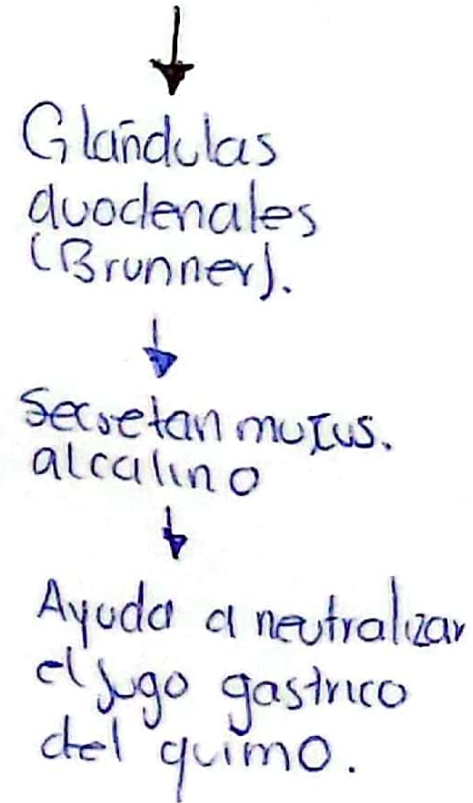 Glándulas
duodenales
(Brunner).
Secretan mucus.
alcalino
Ayuda a neutralizar
el jugo gastrico
del quimo.